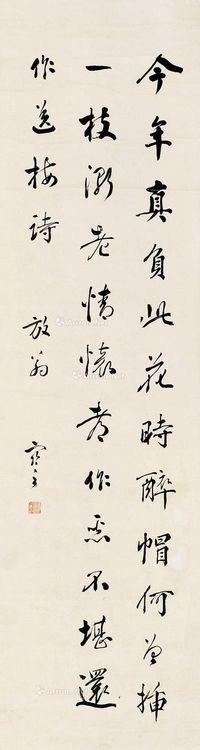 今年真負此花時醉帽何曾插
一枝漸老情懷都作惡不堪還
作送梅詩 放翁